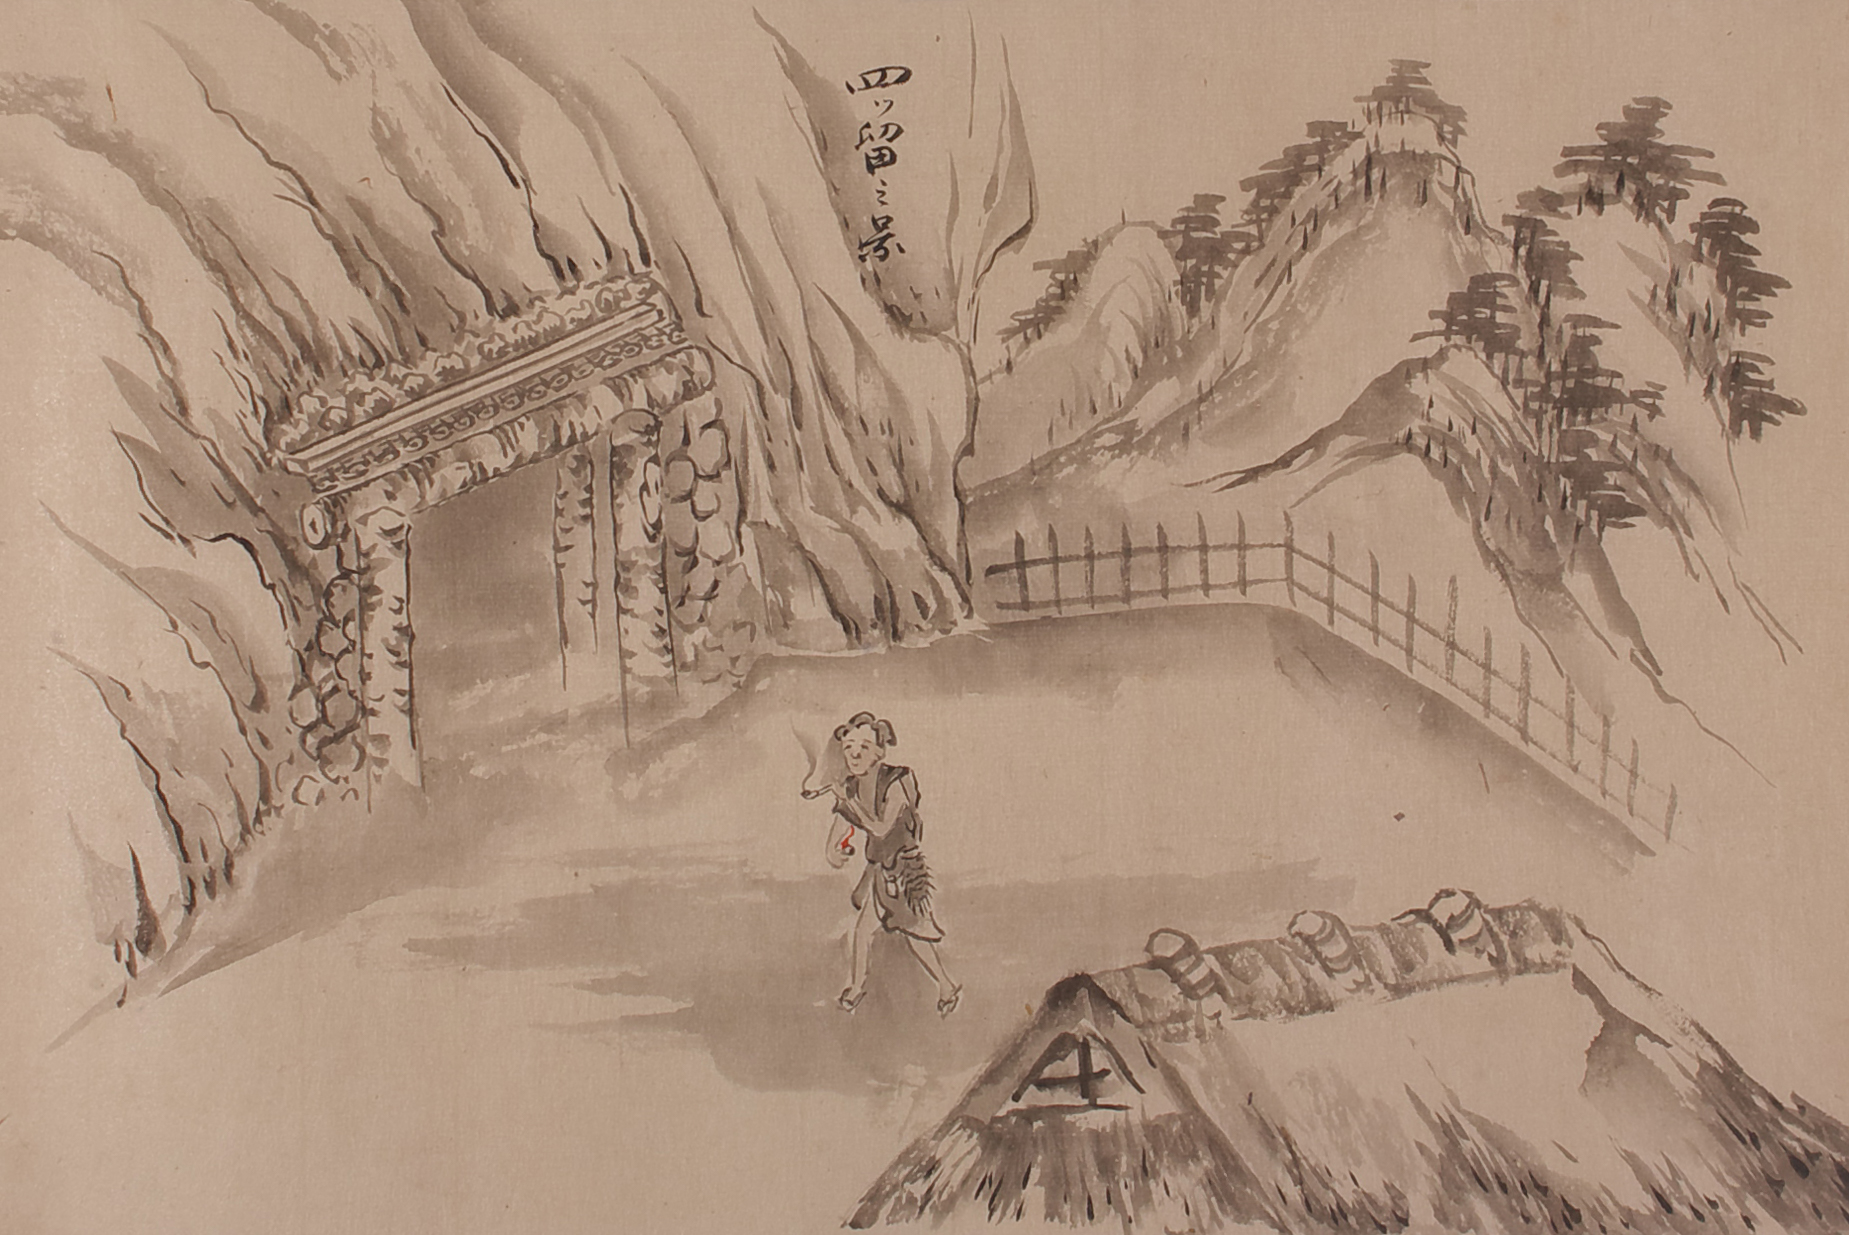 四ッ留之景